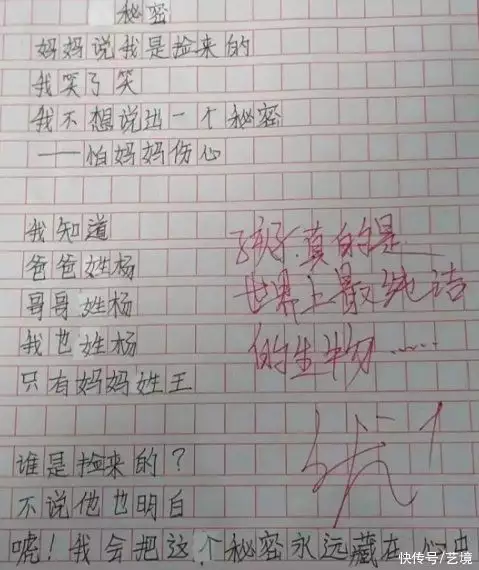 秘密
妈妈说我是捡来的
我笑了笑
我不想说出一个秘密
——怕妈妈伤心
我知道
爸爸姓杨
哥哥姓杨
我也姓杨
只有妈妈姓王
谁是捡来的？
不说他也明白
嘘！我会把这个秘密永远藏在心中
孩子，真的是
世界上最纯洁
的生物……
优↑
快传号/艺境